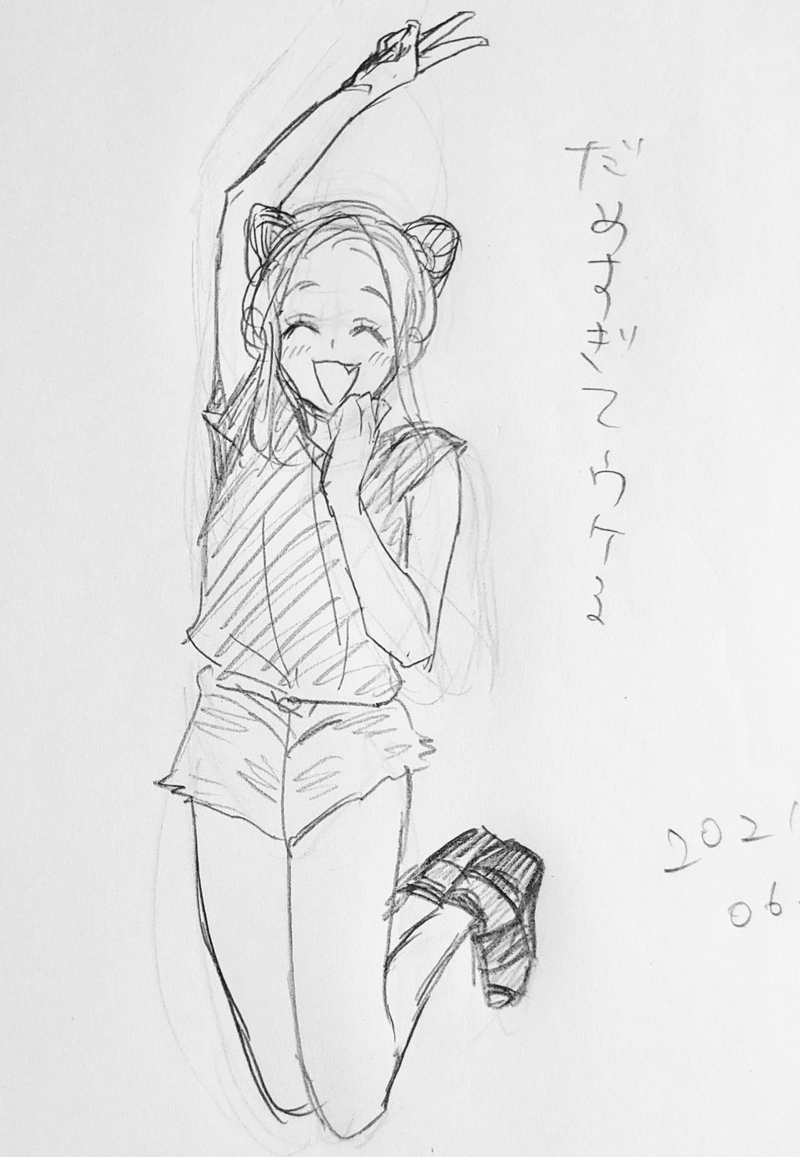 だめすぎてウケる
2021
06.